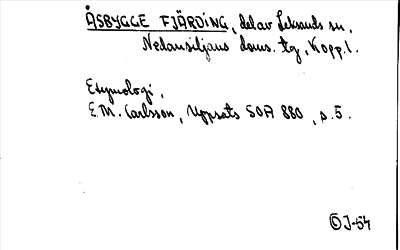 ÅSBYGGE FJÄRDING, del av Leksands sn,
Nedansiljans doms. tg, Kopp. l.
Etymologi,
E.M. Carlsson, Uppsats SOA 880, s. 5.
ÖJ-54